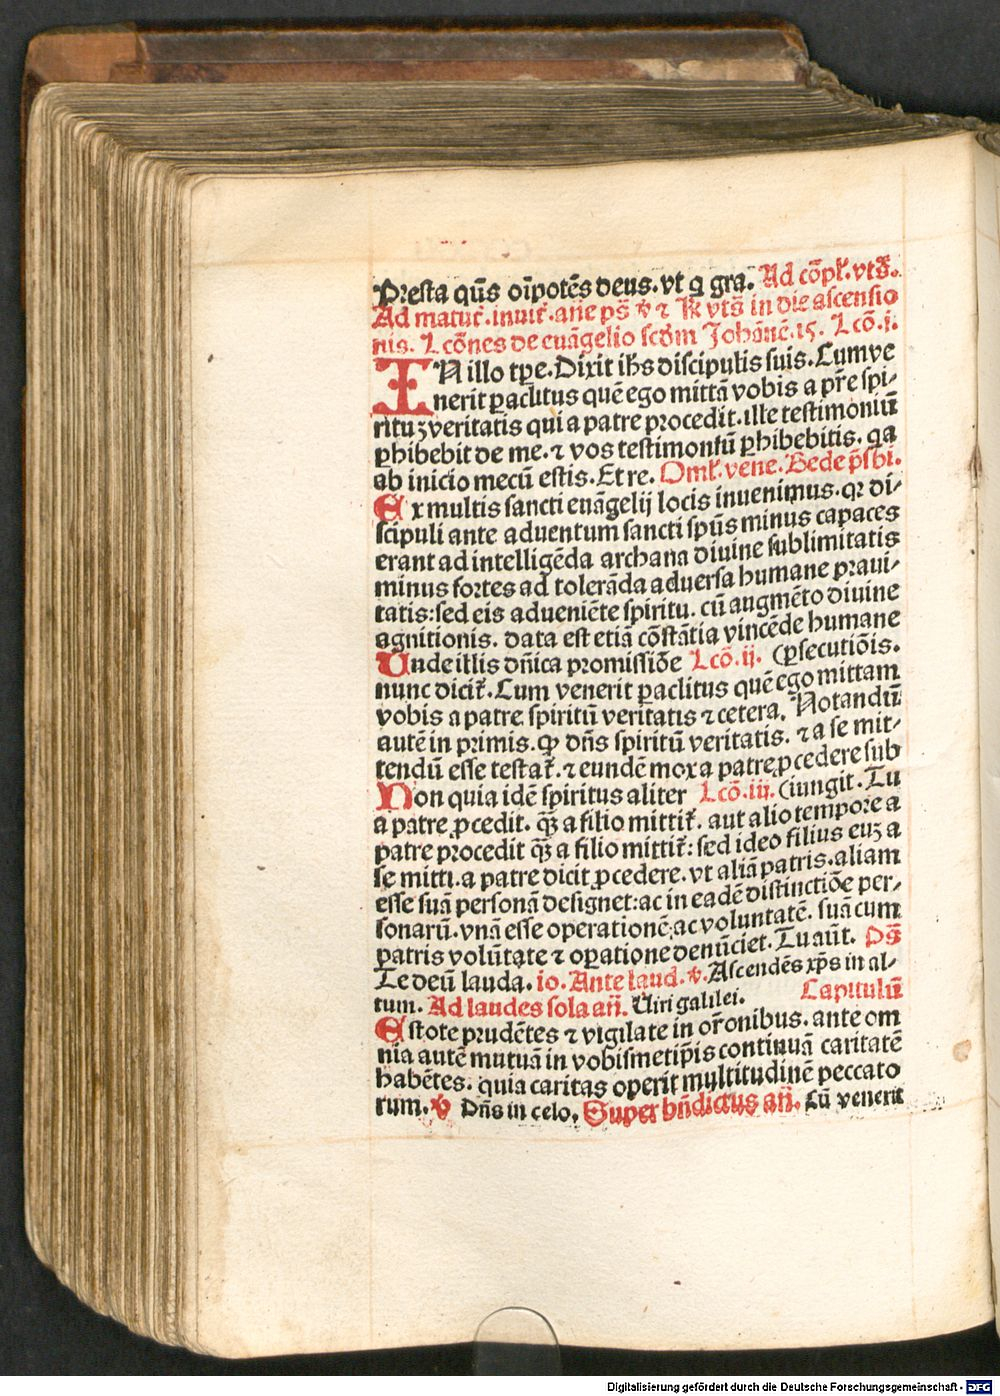 Presta q̄s oı̄potēs deus. vt q gra. Ad cōpl'. vts̄.
Ad matut̄. inuit̄. an̄e ps̄ ꝟ ⁊ ℟ vts̄ in die ascensio
nis. Lcōnes de euāgelio scd̄m Johānē. 15. Lcō. i.
IN illo tꝑe. Dixit ih̄s discipulis suis. Cum ve
nerit ꝑaclitus quē ego mittā vobis a pr̄e spi⸗
rituꝫ veritatis qui a patre procedit. ille testimoniū
ꝑhibebit de me. ⁊ vos testimoniū ꝑhibebitis. qa
ab inicio mecū estis. Et re. Oml'. vene. Bede p̄sbi.
Ex multis sancti euāgelij locis inuenimus. qꝛ di⸗
scipuli ante aduentum sancti sp̄us minus capaces
erant ad intelligēda archana diuine sublimitatis
minus fortes ad tolerāda aduersa humane praui⸗
tatis: sed eis adueniēte spiritu. cū augmēto diuine
agnitionis. data est etiā cōstātia vincēde humane
Unde illis dn̄ica promissiōe Lcō. ij. (ꝑsecutiōis.
nunc dicit̄. Cum venerit ꝑaclitus quē ego mittam
vobis a patre spiritū veritatis ⁊ cetera. Notandū
autē in primis. ꝙ dn̄s spiritū veritatis. ⁊ a se mit⸗
tendū esse testat̄. ⁊ eundē mox a patre ꝓcedere sub
Non quia idē spiritus aliter Lcō. iij. (iungit. Tu
a patre ꝓcedit. q̄ꝫ a filio mittit̄. aut alio tempore a
patre procedit q̄ꝫ a filio mittit̄: sed ideo filius euꝫ a
se mitti. a patre dicit ꝓcedere. vt aliā patris. aliam
esse suā personā designet: ac in eadē distinctiōe per⸗
sonarū. vnā esse operationē ac voluntatē. suā cum
patris volūtate ⁊ oꝑatione denūciet. Tu aūt. Ps̄
Te deū lauda. io. Ante laud. ꝟ. Ascendēs xp̄s in al⸗
tum. Ad laudes sola an̄. Uiri galilei. Capitulū
Estote prudētes ⁊ vigilate in or̄onibus. ante om
nia autē mutuā in vobismetip̄is continuā caritatē
habētes. quia caritas operit multitudinē peccato
rum. ꝟ Dn̄s in celo. Super bn̄dictus an̄. Cū venerit
Digitalisierung gefördert durch die Deutsche Forschungsgemeinschaft - DFG